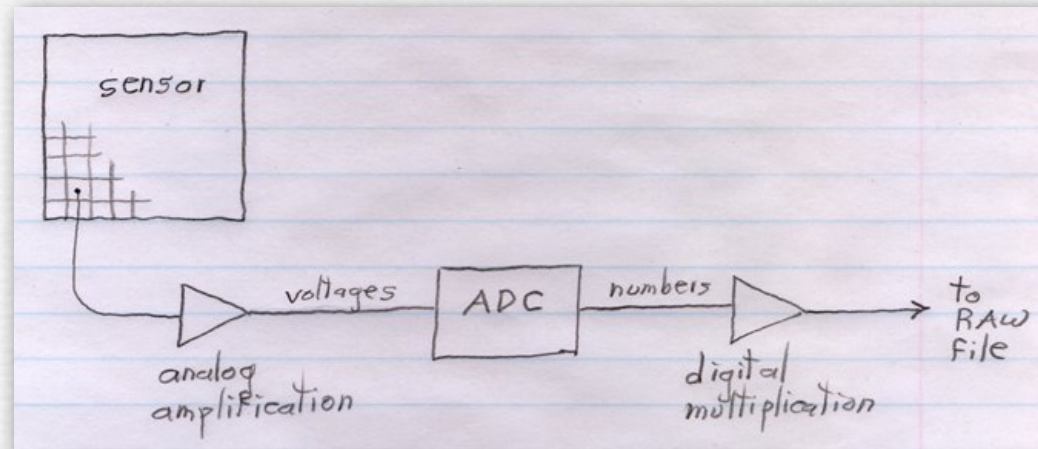 sensor
voltages
ADC
numbers
to
RAW
file
analog
amplification
digital
multiplication